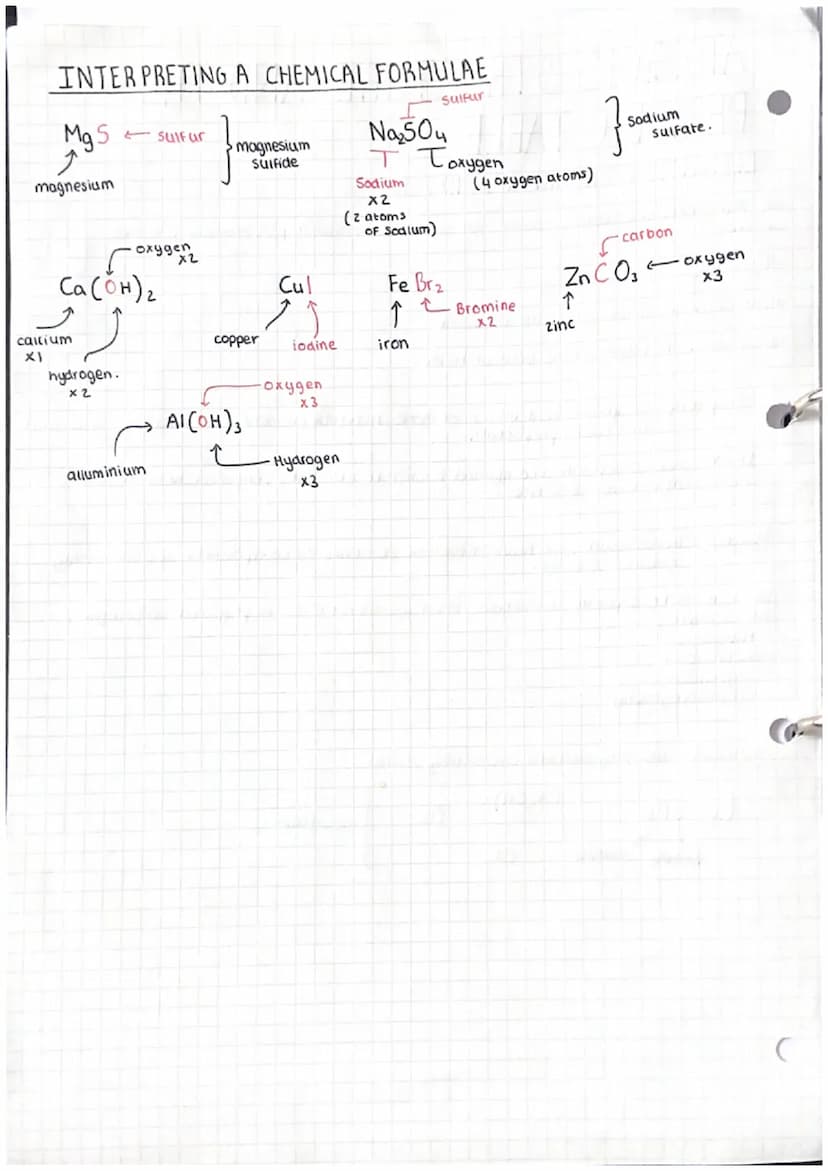 INTERPRETING A CHEMICAL FORMULAE
MgS ← sulfur
magnesium
magnesium
sulfide
sulfur
Na₂SO₄
Sodium
x2
(2 atoms
of sodium)
oxygen
(4 oxygen atoms)
sodium
sulfate.
oxygen
x2
Ca(OH)₂
calcium
x1
hydrogen.
x2
CuI
copper
iodine
FeBr₂
iron
Bromine
x2
carbon
ZnCO₃ ← oxygen
x3
zinc
oxygen
x3
Al(OH)₃
alluminium
Hydrogen
x3